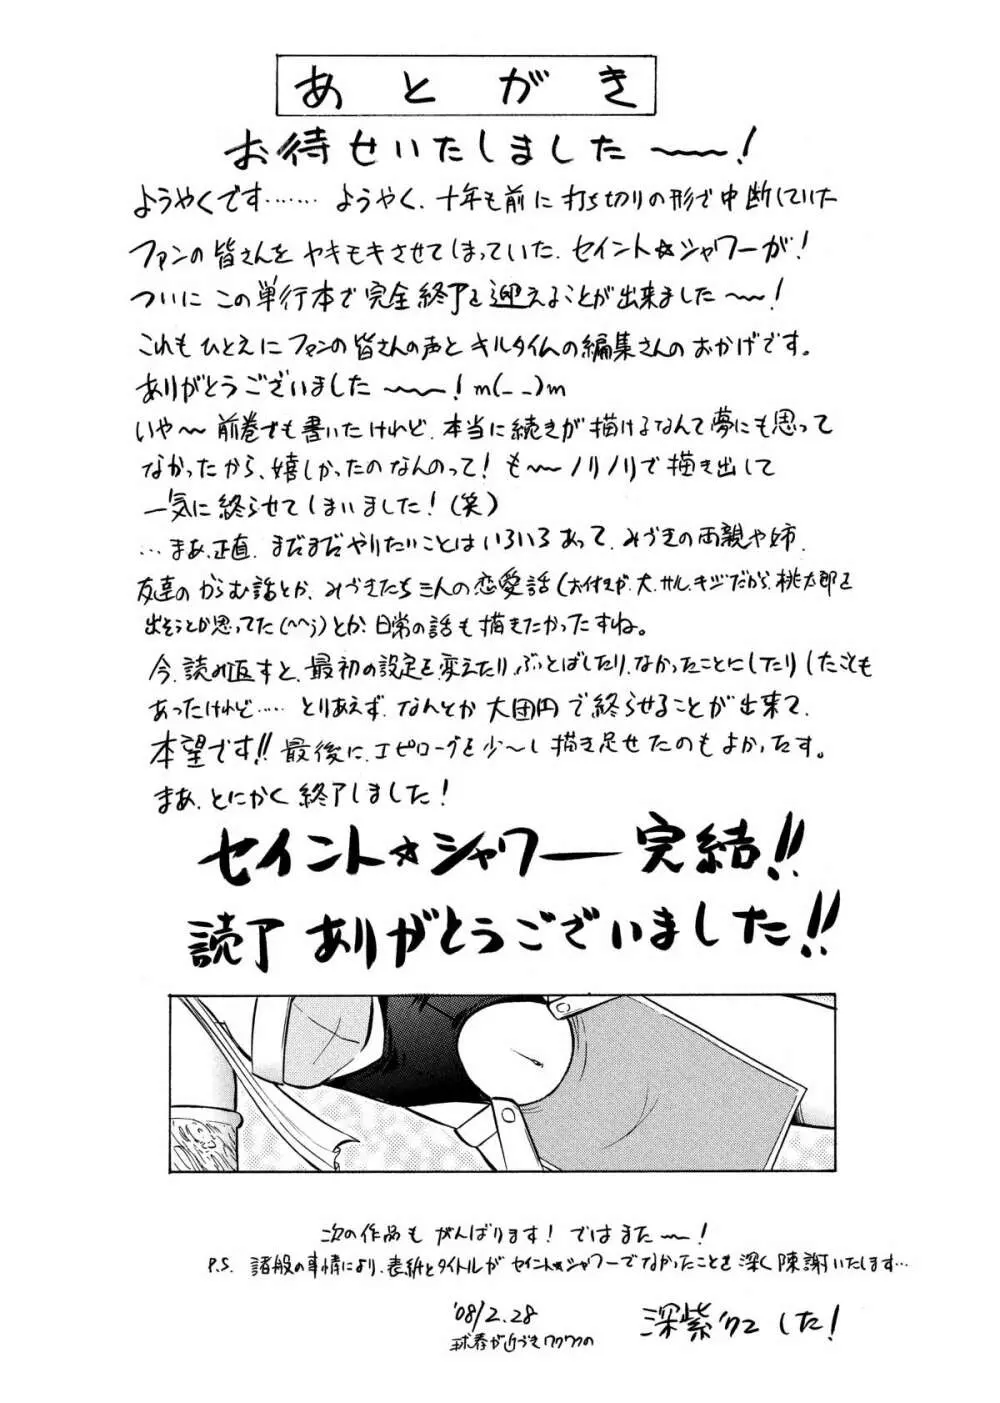 あとがき
お待せいたしました〜〜!
ようやくです……. ようやく、十年も前に打ち切りの形で中断していた
ファンの皆さんをヤキモキさせてしまっていた、セイント☆シャワーが!
ついにこの単行本で完全終了を迎えることが出来ました〜〜!
これもひとえにファンの皆さんの声とキルタイムの編集さんのおかげです。
ありがとうございました〜〜〜!m(_ _)m
いや〜〜前巻でも書いたけれど、本当に続きが描けるなんて夢にも思って
なかったから、嬉しかったのなんのって!も〜〜ノリノリで描き出して
一気に終らせてしまいました!(笑)
…まあ、正直、まだまだやりたいことはいろいろあって、みづきの両親や姉、
友達のからむ話とか、みづきたち三人の恋愛話(お付きが、犬、サル、キジだから、桃太郎を
出そうとか思ってた(^^;)とか、日常の話も描きたかったすね。
今、読み返すと、最初の設定を変えたり、ぶっとばしたり、なかったことにしたりしたことも
あったけれど….. とりあえず、なんとか大団円で終らせることが出来て、
本望です!!最後に、エピローグを少〜し描き足せたのもよかったす。
まあ、とにかく終了しました!
セイント☆シャワー完結!!
読了ありがとうございました!!
次の作品もがんばります!ではまた〜〜!
P.S. 諸般の事情により、表紙とタイトルがセイント☆シャワーでなかったことを深く陳謝いたします…
'08/2.28
球春が近づきワクワクの
深紫 した!